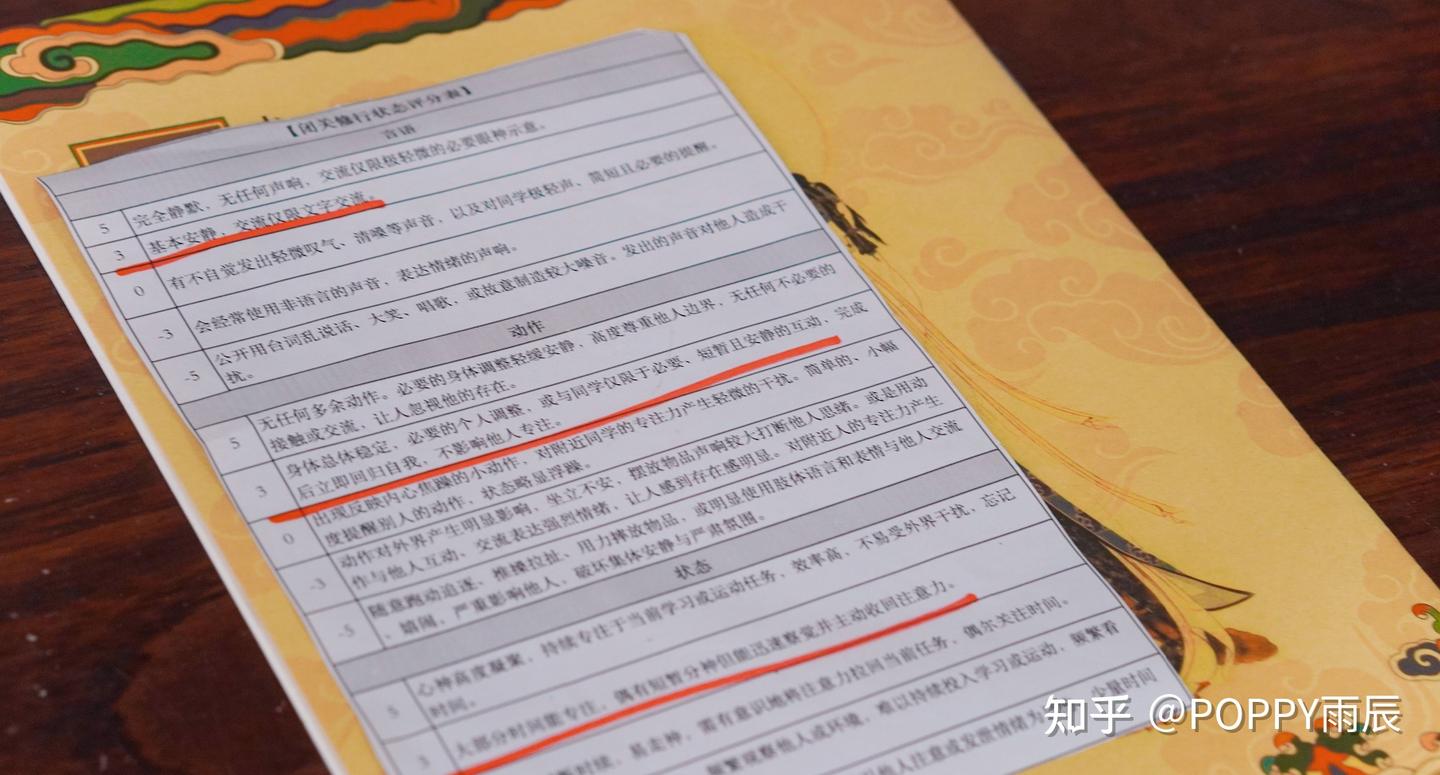 【闭关修行状态评分表】
言语
5 完全静默，无任何声响，交流仅限极轻微的必要眼神示意。
3 基本安静，交流仅限文字交流。
0 有不自觉发出轻微叹气、清嗓等声音，以及对同学极轻声、简短且必要的提醒。
-3 会经常使用非语言的声音，表达情绪的声响。
-5 公开用台词乱说话、大笑、唱歌，或故意制造较大噪音。发出的声音对他人造成干
扰。
动作
5 无任何多余动作。必要的身体调整轻缓安静，高度尊重他人边界，无任何不必要的
接触或交流，让人忽视他的存在。
3 身体总体稳定，必要的个人调整，或与同学仅限于必要、短暂且安静的互动，完成
后立即回归自我，不影响他人专注。
0 出现反映内心焦躁的小动作，对附近同学的专注力产生轻微的干扰。简单的、小幅
度提醒别人的动作，状态略显浮躁。
-3 动作对外界产生明显影响，坐立不安，摆放物品声响较大打断他人思绪。或是用动
作与他人互动、交流表达强烈情绪，让人感到存在感明显。对附近人的专注力产生
-5 随意跑动追逐、推搡拉扯、用力摔放物品，或明显使用肢体语言和表情与他人交流
、嬉闹，严重影响他人，破坏集体安静与严肃氛围。
状态
5 心神高度凝聚，持续专注于当前学习或运动任务，效率高，不易受外界干扰，忘记
时间。
3 大部分时间能专注，偶有短暂分神但能迅速察觉并主动收回注意力。
时续，易走神，需有意识地将注意力拉回当前任务，偶尔关注时间。
频繁观察他人或环境，难以持续投入学习或运动，频繁看
他人注意或发泄情绪为
知乎 @POPPY雨辰